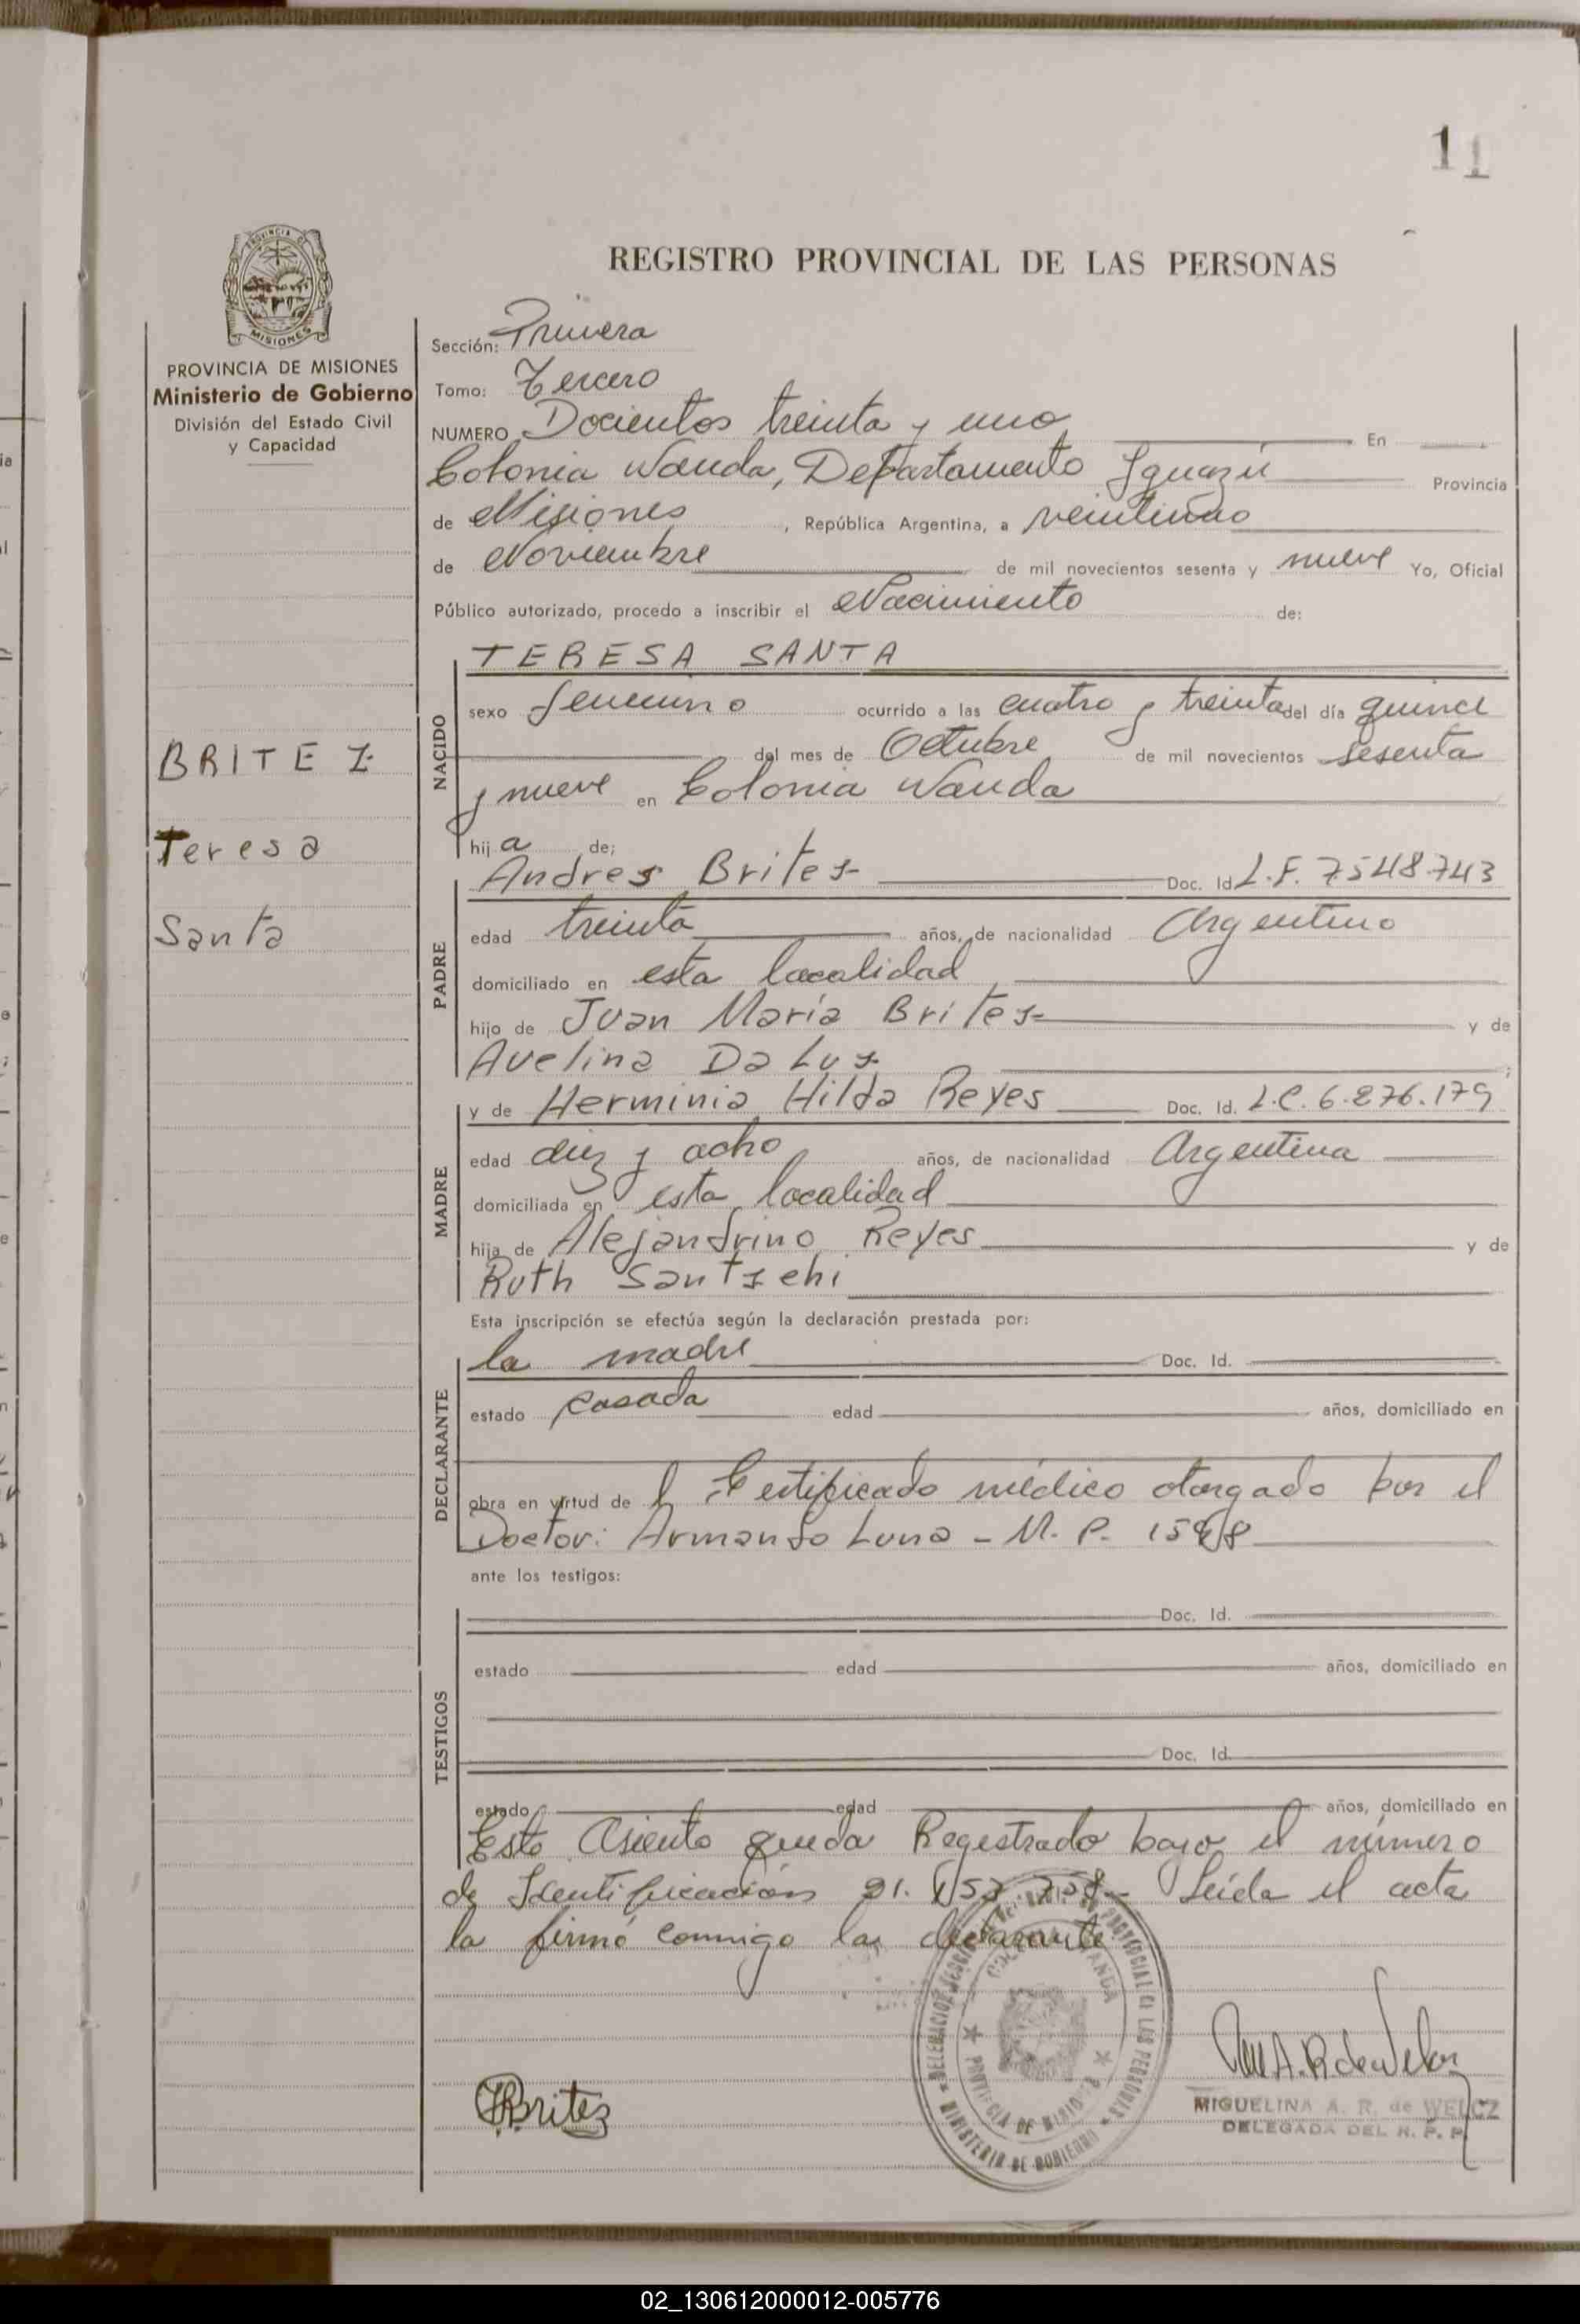 11
REGISTRO PROVINCIAL DE LAS PERSONAS
PROVINCIA DE
MISIONES
PROVINCIA DE MISIONES
Ministerio de Gobierno
División del Estado Civil
y Capacidad
BRITEZ
Teresa
Santa
Sección: Primera
Tomo: Tercero
NUMERO Docientos treinta y uno En
Colonia Wanda, Departamento Iguazú Provincia
de Misiones, República Argentina, a veintiuno
de Noviembre de mil novecientos sesenta y nueve Yo, Oficial
Público autorizado, procedo a inscribir el Nacimiento de:
NACIDO
TERESA SANTA
sexo femenino ocurrido a las cuatro y treinta del día quince
del mes de Octubre de mil novecientos sesenta
y nueve en Colonia Wanda
hija de;
PADRE
Andres Britez Doc. Id L.E. 7.548.743
edad treinta años, de nacionalidad Argentino
domiciliado en esta localidad
hijo de Juan María Britez y de
Avelina Da Luz ;
MADRE
y de Herminia Hilda Reyes Doc. Id. L.C. 6.276.179
edad diez y ocho años, de nacionalidad Argentina
domiciliada en esta localidad
hija de Alejandrino Reyes y de
Ruth Santzchi
Esta inscripción se efectúa según la declaración prestada por:
DECLARANTE
la madre Doc. Id.
estado casada edad años, domiciliado en
obra en virtud de l Certificado médico otorgado por el
Doctor: Armando Luna - M. P. 
ante los testigos:
TESTIGOS
Doc. Id.
estado edad años, domiciliado en
Doc. Id.
estado edad años, domiciliado en
Este Asiento queda Registrado bajo el número
de Identificación 21. Leída el acta
la firmó conmigo la declarante
COLONIA WANDA
PROVINCIA DE MISIONES
MINISTERIO DE GOBIERNO
HBritez
M.A.R. de Welcz
MIGUELINA A. R. de WELCZ
DELEGADA DEL R. P. P.
02_130612000012-005776